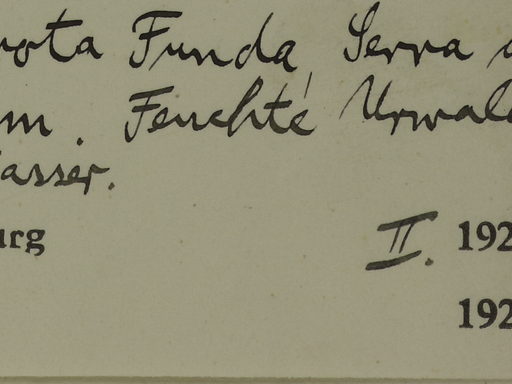 rota Funda, Serra d
m. Feuchte Urwald
asser.
urg II. 192
192